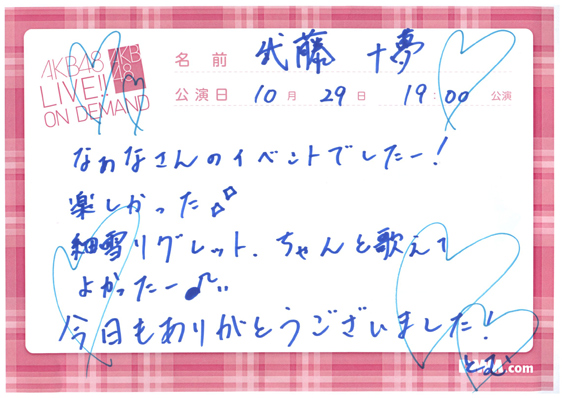 AKB48
LIVE!!
ON DEMAND
AKB
48
名前 武藤 十夢
公演日 10月 29日 19:00 公演
なぁなさんのイベントでしたー!
楽しかった
細雪リグレット、ちゃんと歌えて
よかったー♪
今日もありがとうございました!
とむ
.com